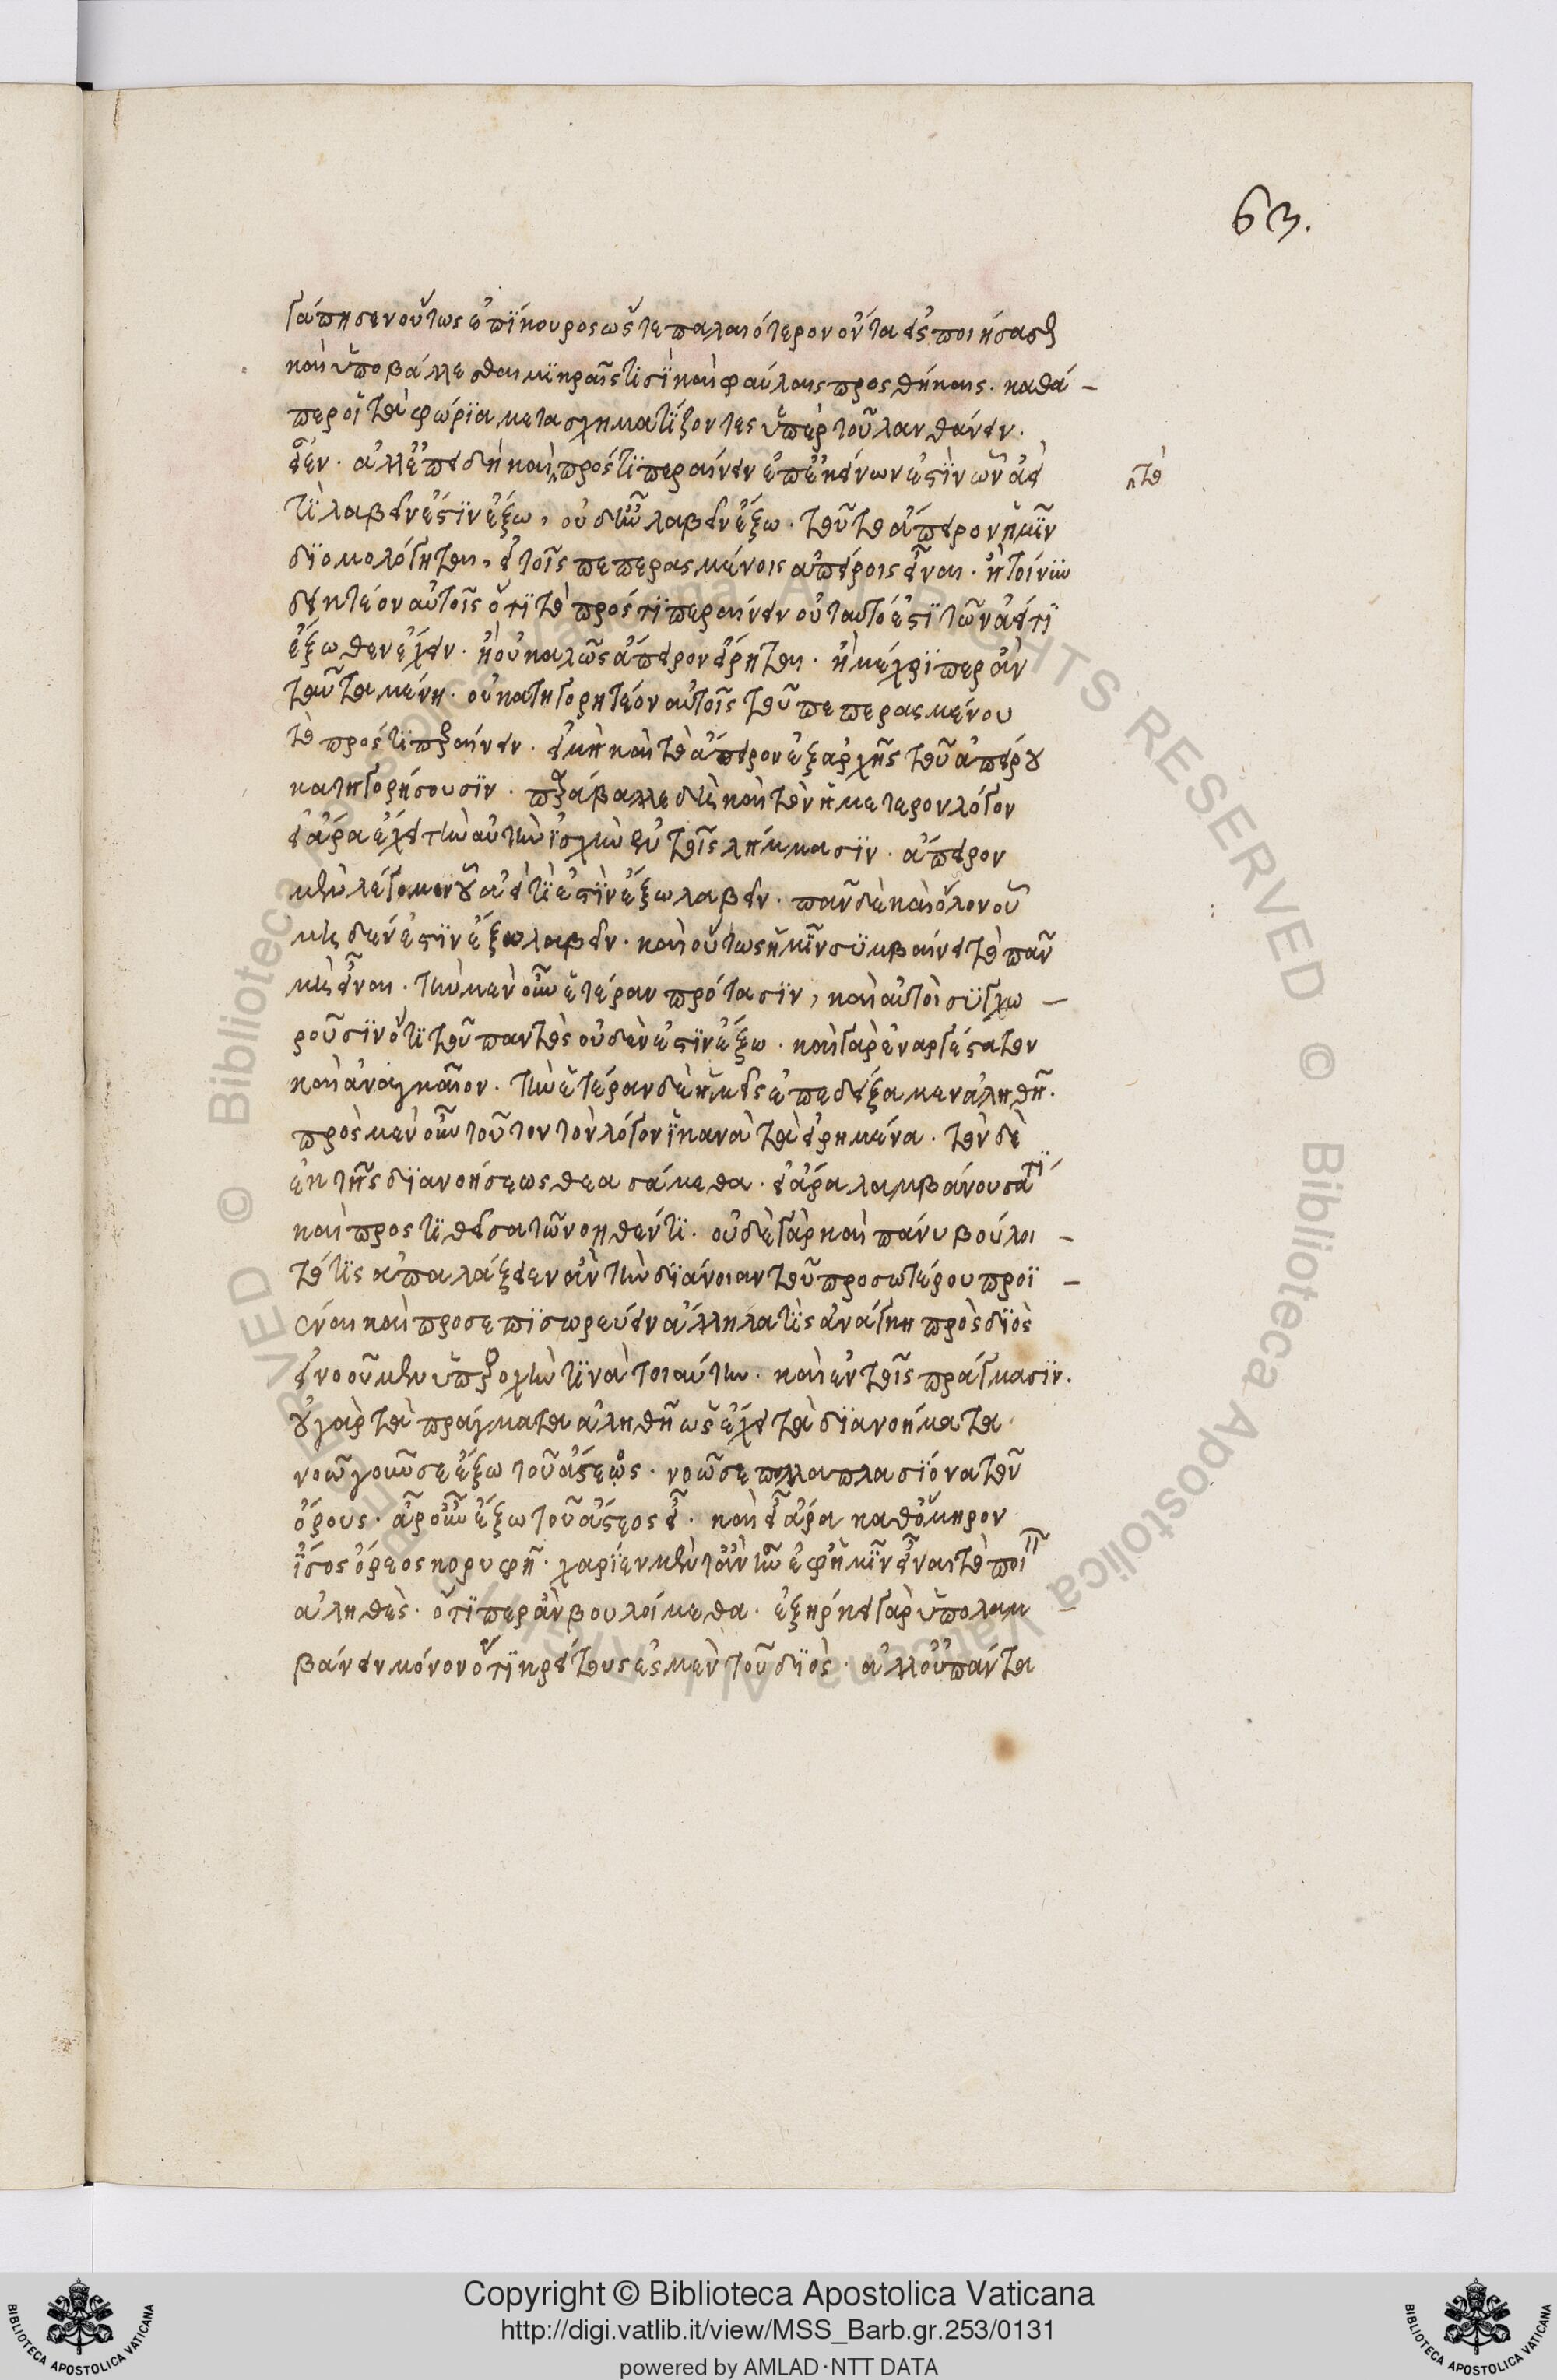 63.
γάπησεν οὕτως ἐπίκουρος ὥστε παλαιότερον ὄντα εἰσποιήσασθ
καὶ ὑποβάλλεσθαι μικραῖς τισὶ καὶ φαύλαις προσθήκαις. καθά-
περ οἱ τὰ φώρια μετασχηματίζοντες ὑπὲρ τοῦ λανθάνειν.
εἶεν. ἀλλ' ἐπειδὴ καὶ πρός τι περαίνειν ἐπ' ἐκείνων ἐστὶν ὧν ἀεὶ
τὸ
τὶ λαβεῖν ἐστιν ἔξω, οὐδ' ὧν λαβεῖν ἔξω. τοῦτο ἄπειρον ἡμῖν
διομολόγηται, εἰ τοῖς πεπερασμένοις ἀπείροις εἶναι. ἢ τοίνυν
δεικτέον αὐτοῖς ὅτι τὸ πρός τι περαίνειν οὐ ταὐτό ἐστι τῶν ἀεί τι
ἔξωθεν ἔχειν. ἢ οὐ καλῶς ἄπειρον εἴρηται. ἢ μέχρι περ ἂν
ταῦτα μένῃ. οὐ κατηγορητέον αὐτοῖς τοῦ πεπερασμένου
τὸ πρός τι περαίνειν. εἰ μὴ καὶ τὸ ἄπειρον ἐξαρχῆς τοῦ ἀπείρου
κατηγορήσουσιν. παράβαλλε δὴ καὶ τὸν ἡμέτερον λόγον
εἰ ἄρα ἔχει τὴν αὐτὴν ἰσχὺν ἐν τοῖς λήμμασιν. ἄπειρον
μὲν λέγομεν οὗ ἀεὶ τὶ ἐστὶν ἔξω λαβεῖν. πᾶν δὲ καὶ ὅλον οὗ
μηδέν ἐστιν ἔξω λαβεῖν. καὶ οὕτως ἡμῖν συμβαίνει τὸ πᾶν
μὴ εἶναι. τὴν μὲν οὖν ἑτέραν πρότασιν, καὶ αὐτοὶ συγχω-
ροῦσιν ὅτι τοῦ παντὸς οὐδὲν ἐστὶν ἔξω. καὶ γὰρ ἐναργέστατον
καὶ ἀναγκαῖον. τὴν ἑτέραν δὲ ἡμεῖς ἐπεδείξαμεν ἀληθῆ.
πρὸς μὲν οὖν τοῦτον τὸν λόγον ἱκανὰ τὰ εἰρημένα. τὸν δὲ
ἐκ τῆς διανοήσεως θεασάμεθα. εἰ ἄρα λαμβάνουσά τι
καὶ προστιθεῖσα τῶ νοηθέντι. οὐδὲ γὰρ καὶ πάνυ βούλοι-
τό τις ἀπαλάξειεν ἂν τὴν διάνοιαν τοῦ προσωτέρου προϊ-
έναι καὶ προσεπισωρεύειν ἄλληλα τὶς ἀνάγκη πρὸς διὸς
εἰ νοοῦμεν ὑπεροχήν τινὰ τοιαύτην. καὶ ἐν τοῖς πράγμασιν.
οὐ γὰρ τὰ πράγματα ἀληθῆ ὡς ἔχει τὰ διανοήματα.
νοῶ γοῦν σε ἔξω τοῦ ἄστεως. νοῶ σε πολλαπλασίονα τοῦ
ὄρους. ἆρ' οὖν ἔξω τοῦ ἄστεος εἶ. καὶ εἶ ἄρα καθ' ὅμηρον
ἶσος ὄρεος κορυφῆ. χαρίεν μὲν τἂν ἦν ἐφ' ἡμῖν εἶναι τὸ ποιῆ
ἀληθὲς. ὅτι περ ἂν βουλοίμεθα. ἐξηρκει γὰρ ὑπολαμ-
βάνειν μόνον ὅτι κρείττους ἐσμὲν τοῦ διός. ἀλλ' οὐ πάντα
Copyright © Biblioteca Apostolica Vaticana
http://digi.vatlib.it/view/MSS_Barb.gr.253/0131
powered by AMLAD·NTT DATA
BIBLIOTECA APOSTOLICA VATICANA
BIBLIOTECA APOSTOLICA VATICANA